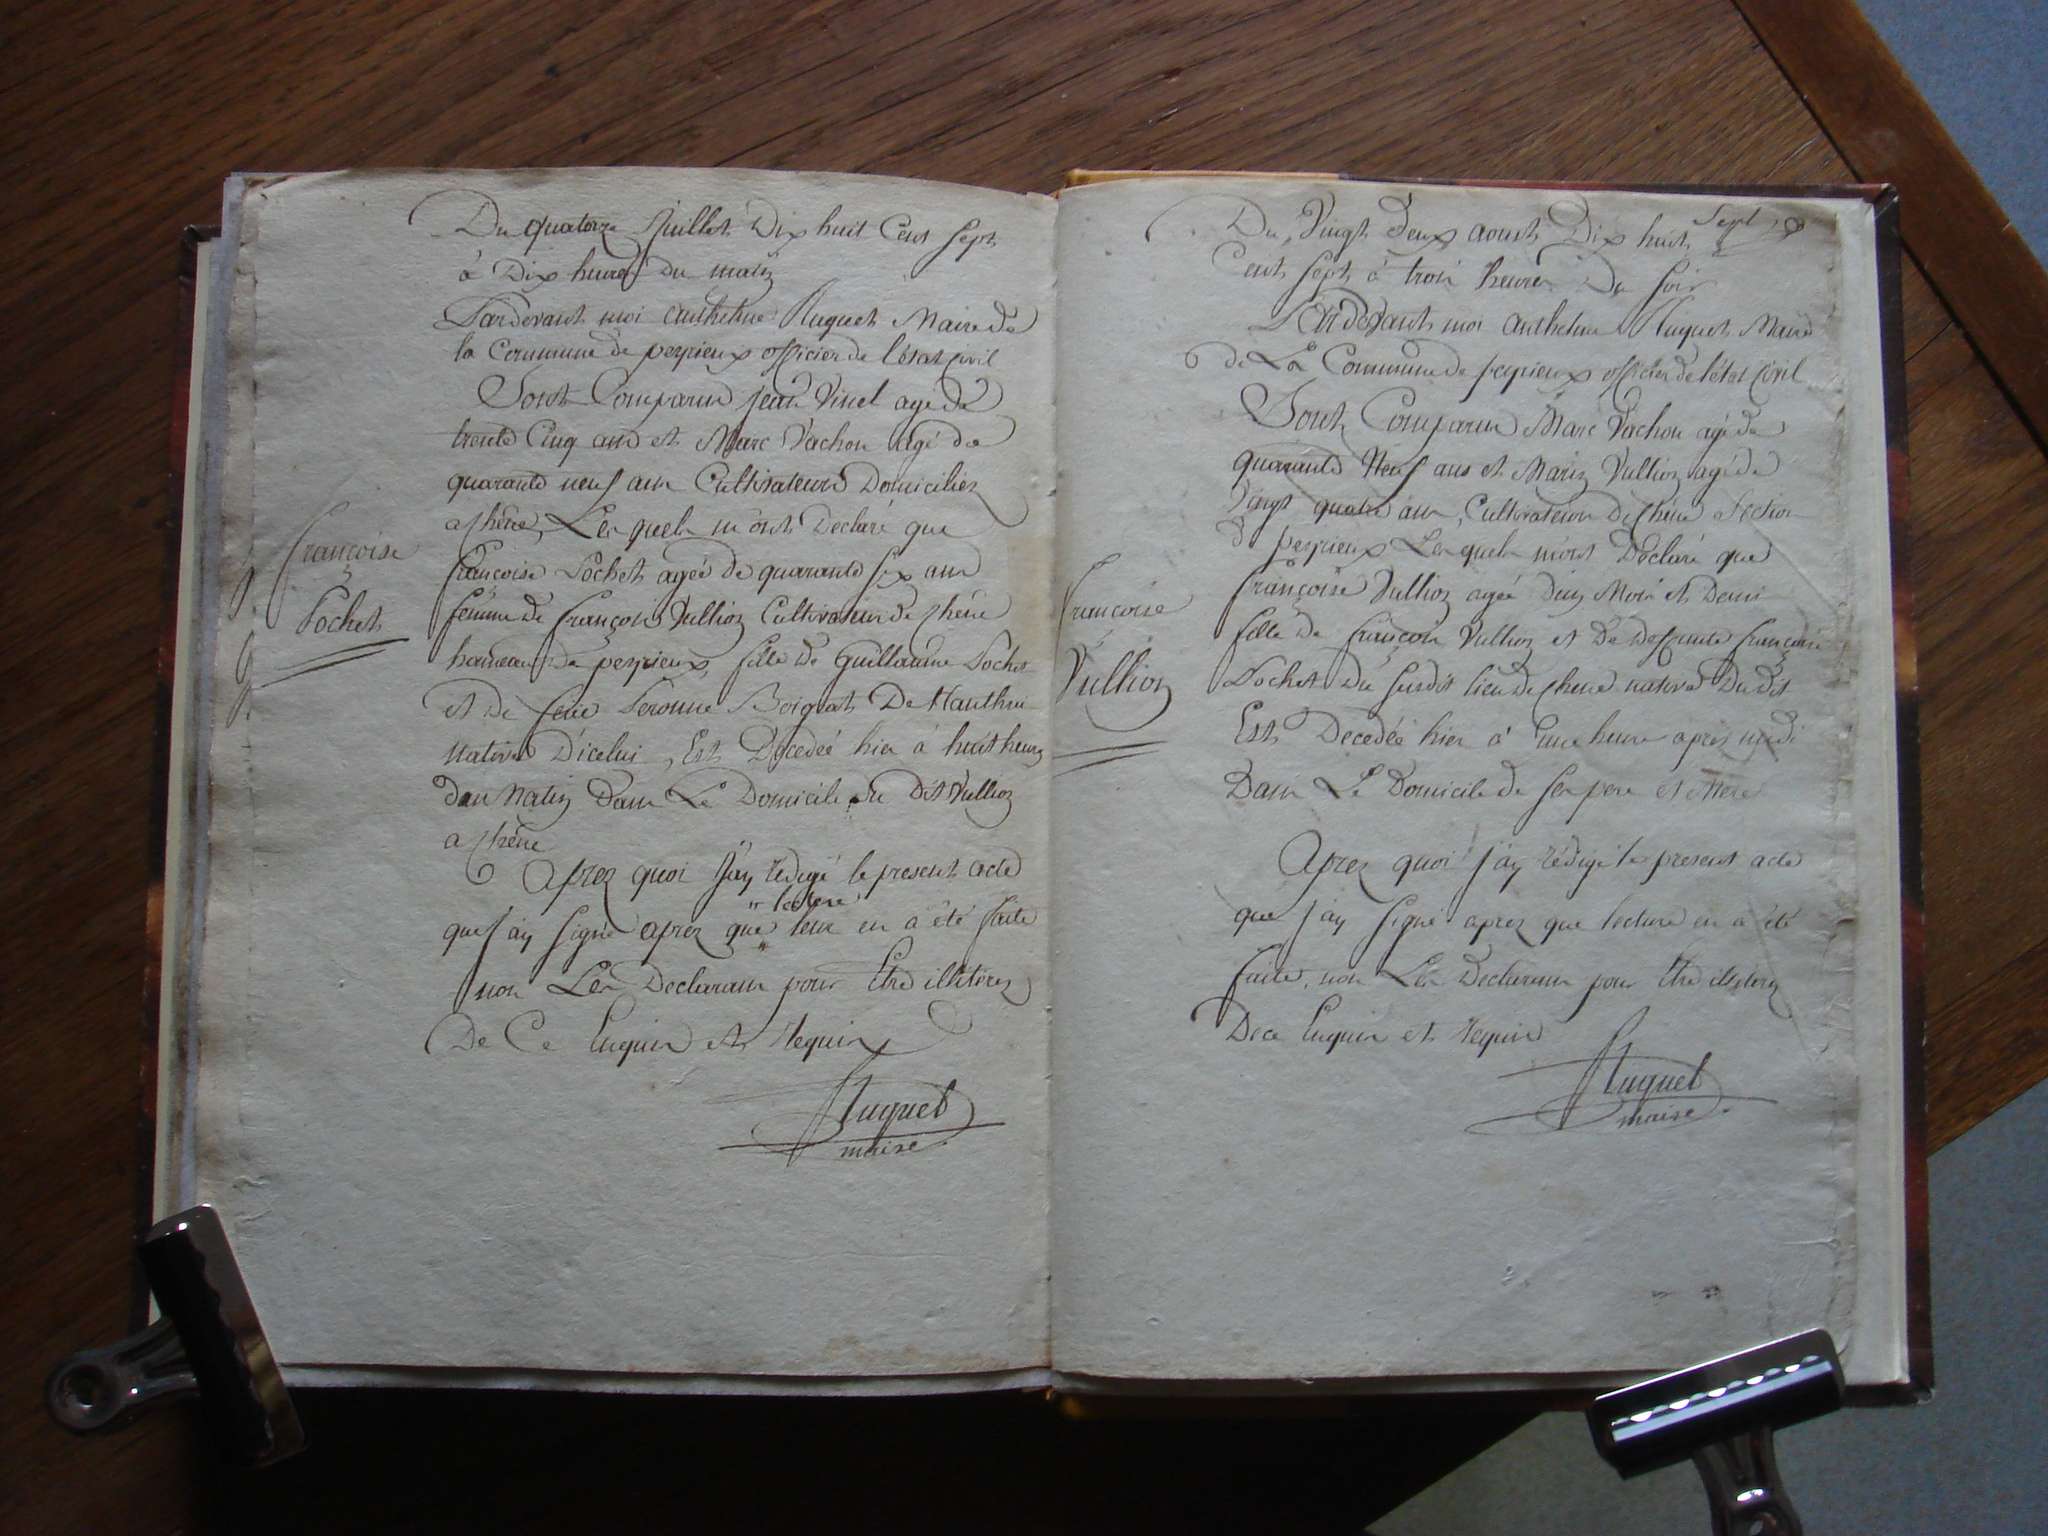 Du quatorze Juillet Dix huit Cent Sept
à Dix heures Du matin
Pardevant moi anthelme Huguet Maire de
la Commune de peyrieux officier de l'état Civil
Sont Comparu jean Vinet agé de
trente Cinq ans et Marc Vachon agé de
quarante neuf ans Cultivateurs Domiciliez
a Chêne, Les quels m'ont Declaré que
françoise Pochet agée de quarante six ans
femme de françois Vullioz Cultivateur de Chêne
hameau de peyrieux, fille de Guillaume Pochet
et de feue Peronne De
native D'icelui, Est Decedée hier à huit heures
du Matin Dans Le Domicile du Dit Vullioz
a Chêne
Aprez quoi J'ay redigé le present acte
lecture
que J'ay Signé aprez que leur en a été faite
non Les Declarans pour Etre illiterez
De Ce Enquis et Requis
Huguet
maire
françoise
Pochet
Sept
Du Vingt Deux aoust Dix huit
Cent Sept à trois heures Du Soir
Pardevant moi anthelme Huguet Maire
de La Commune de peyrieux officier de l'état Civil
Sont Comparu Marc Vachon agé de
quarante Neuf ans et Marin Vullioz agé de
Vingt quatre ans, Cultivateurs De Chêne Section
de peyrieux Les quels m'ont Déclaré que
françoise Vullioz agée D'un Mois et Demi
fille de françois Vullioz et De deffunte françoise
Pochet du susdit lieu de Chêne native Du dit
Est Decedée hier à une heure après midi
Dans Le Domicile de Ses pere et Mere
Aprez quoi J'ay rédigé le present acte
que J'ay Signé aprez que lecture en a été
faite, non Les Declarans pour Etre illiterez
De ce Enquis et Requis
Huguet
maire
françoise
Vullioz